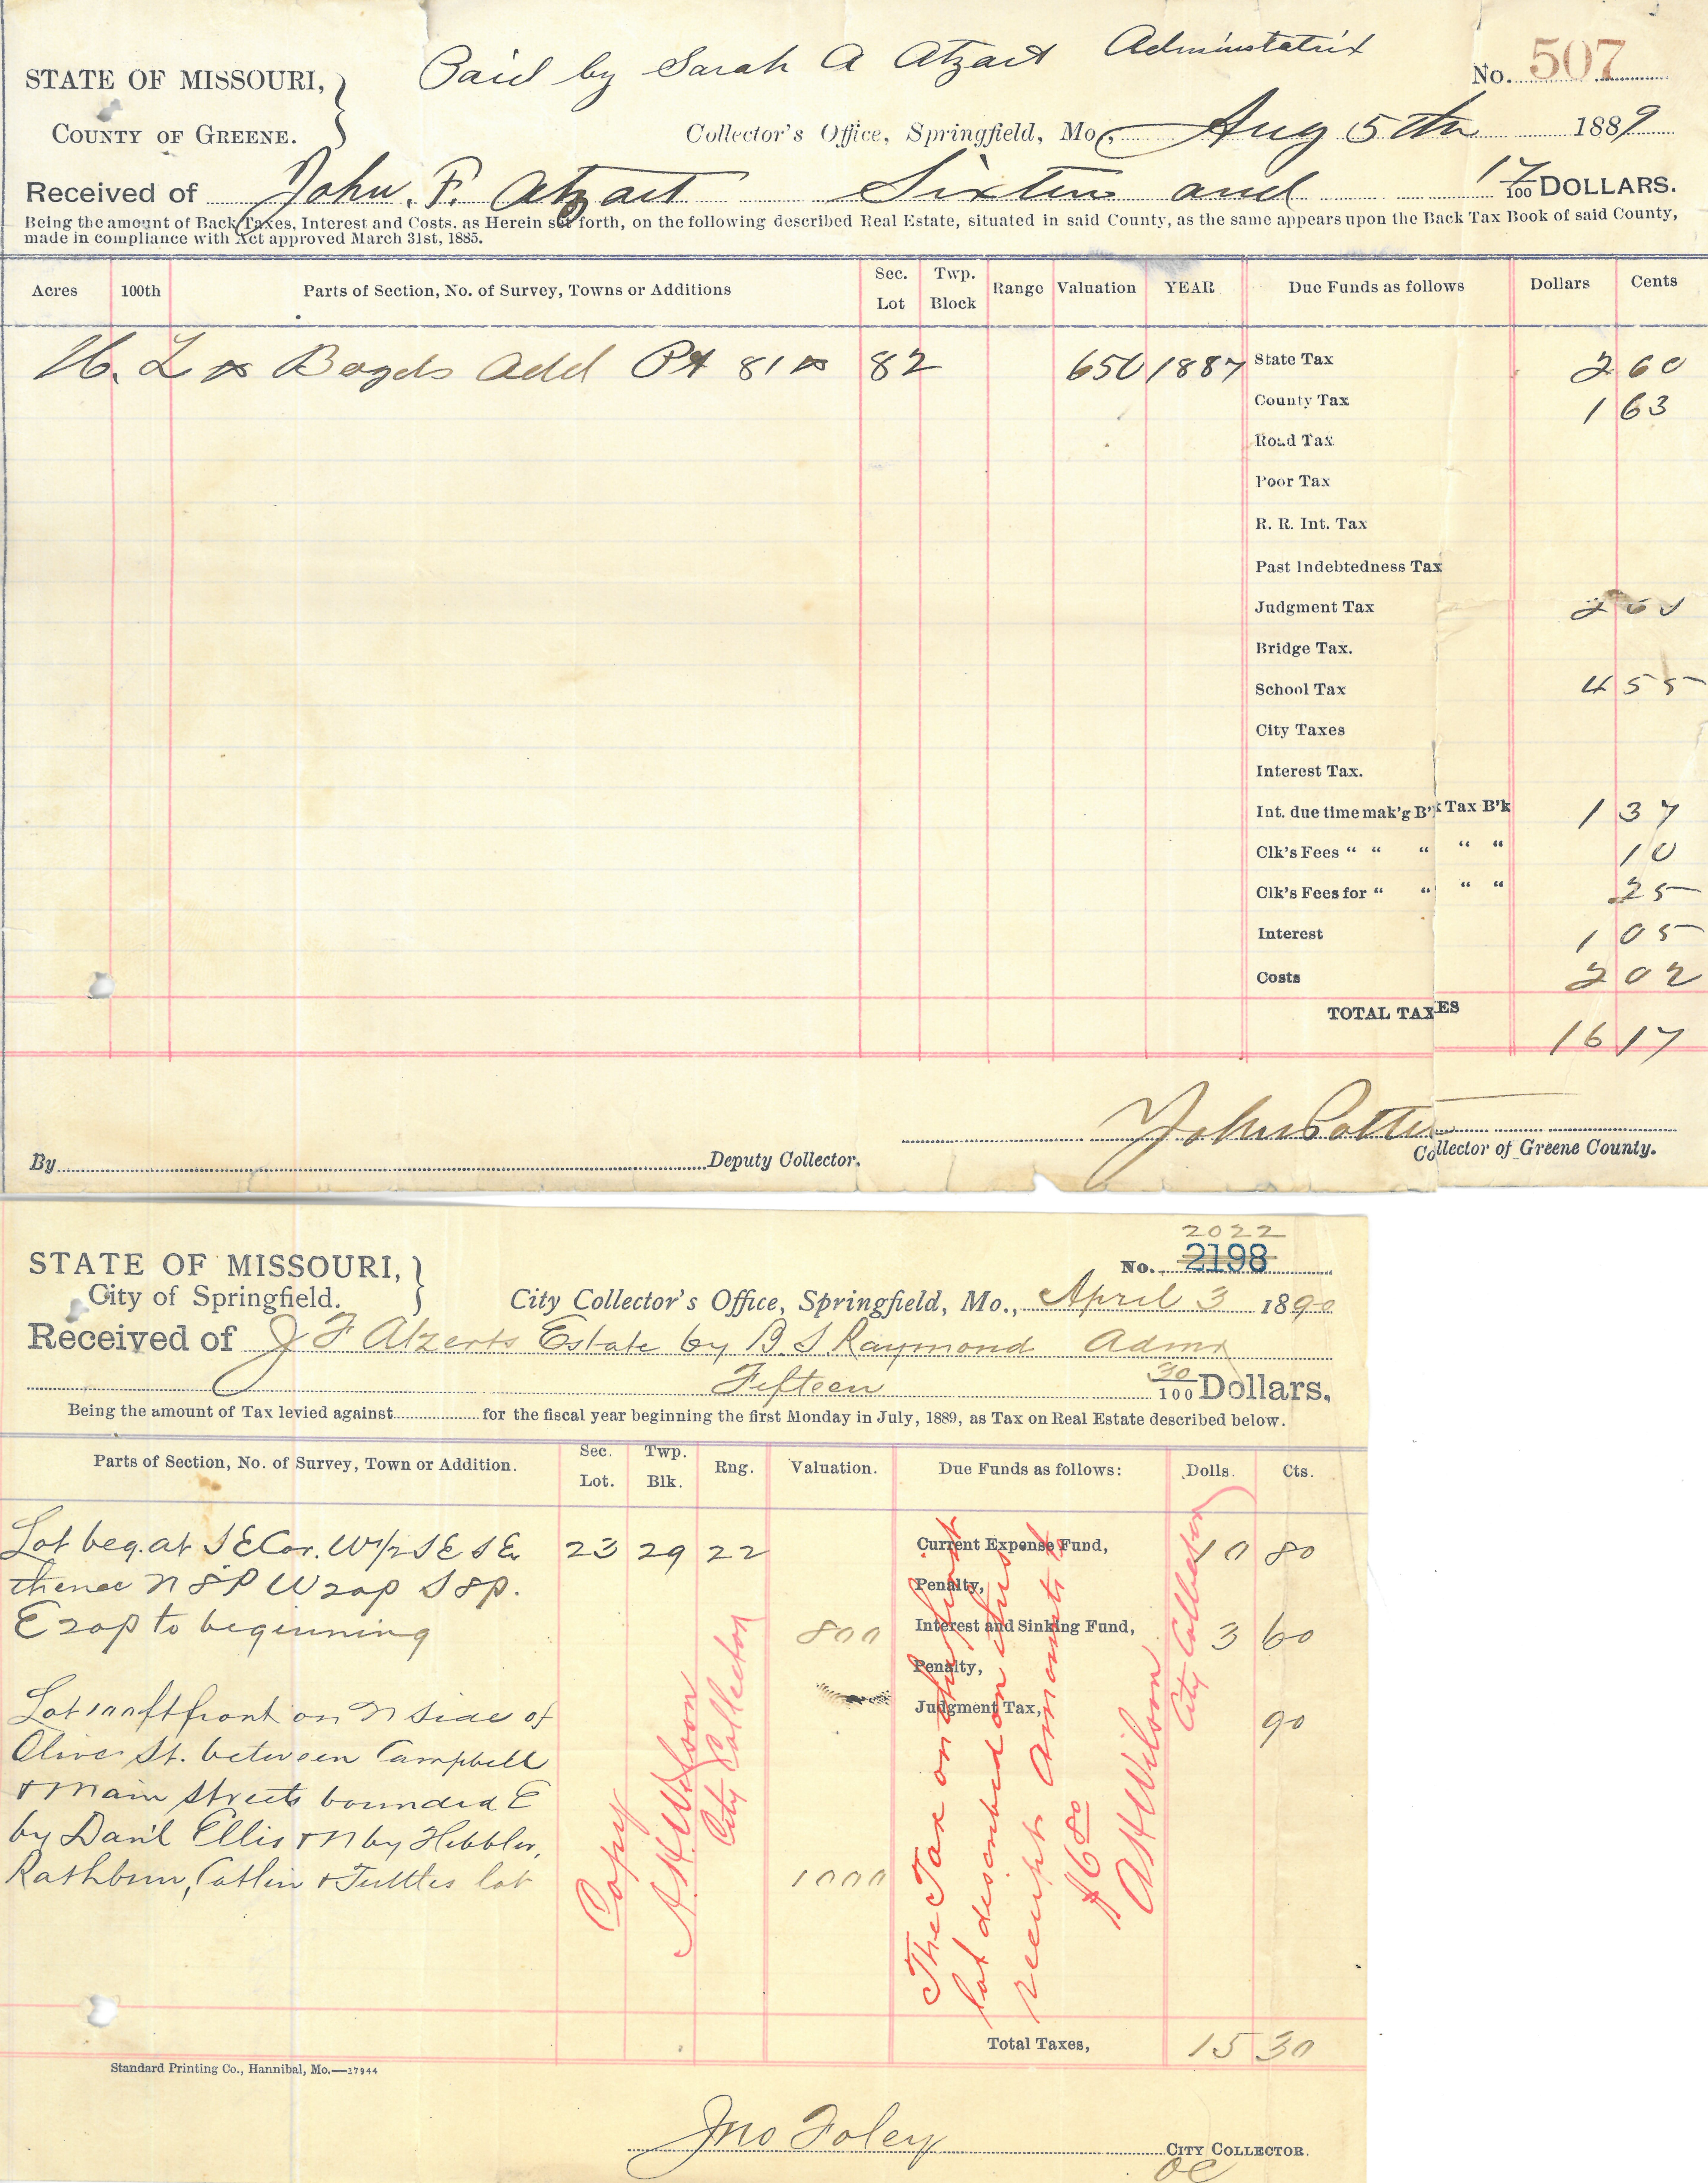 Paid by Sarah A Atzart Administatrix
No. 507
STATE OF MISSOURI,
COUNTY OF GREENE.
Collector's Office, Springfield, Mo., Aug 5th 1889
Received of John. F. Atzart Sixteen and 17/100 DOLLARS.
Being the amount of Back Taxes, Interest and Costs, as Herein set forth, on the following described Real Estate, situated in said County, as the same appears upon the Back Tax Book of said County,
made in compliance with Act approved March 31st, 1885.
Acres 100th Parts of Section, No. of Survey, Towns or Additions Sec. Lot Twp. Block Range Valuation YEAR Due Funds as follows Dollars Cents
Add Pt 81 82 650 1887 State Tax 2 60
County Tax 1 63
Road Tax
Poor Tax
R. R. Int. Tax
Past Indebtedness Tax
Judgment Tax 2 60
Bridge Tax.
School Tax 4 55
City Taxes
Interest Tax.
Int. due time mak'g B'k Tax B'k 1 37
Clk's Fees “ “ “ “ “ 10
Clk's Fees for “ “ “ “ 25
Interest 1 05
Costs 2 02
TOTAL TAXES
16 17
John Potter
By Deputy Collector. Collector of Greene County.
2022
STATE OF MISSOURI,
No. 2198
City of Springfield.
City Collector's Office, Springfield, Mo., April 3 1890
Received of J F Atzerts Estate by B. S. Raymond Admr
Fifteen 30/100 Dollars.
Being the amount of Tax levied against for the fiscal year beginning the first Monday in July, 1889, as Tax on Real Estate described below.
Parts of Section, No. of Survey, Town or Addition. Sec. Lot. Twp. Blk. Rng. Valuation. Due Funds as follows: Dolls. Cts.
Lot beg. at S E Cor. W 1/2 S E S E 23 29 22 Current Expense Fund, 10 80
thence N 8 P W 20p S 8p. Penalty,
E 20p to beginning 800 Interest and Sinking Fund, 3 60
Penalty,
Lot 100 ft front on N side of Judgment Tax, 90
Olive St. between Campbell
& Main streets bounded E
by Danl Ellis & N by Hebbler,
Rathbun, Catlin & Tuttles lot 1000
Copy
A. H. Wilson
City Collector
The Tax on the first
lot described on this
receipt amounts to
$6 80
A H Wilson
City Collector
Total Taxes, 15 30
Standard Printing Co., Hannibal, Mo.—37944
Jno Foley
CITY COLLECTOR.